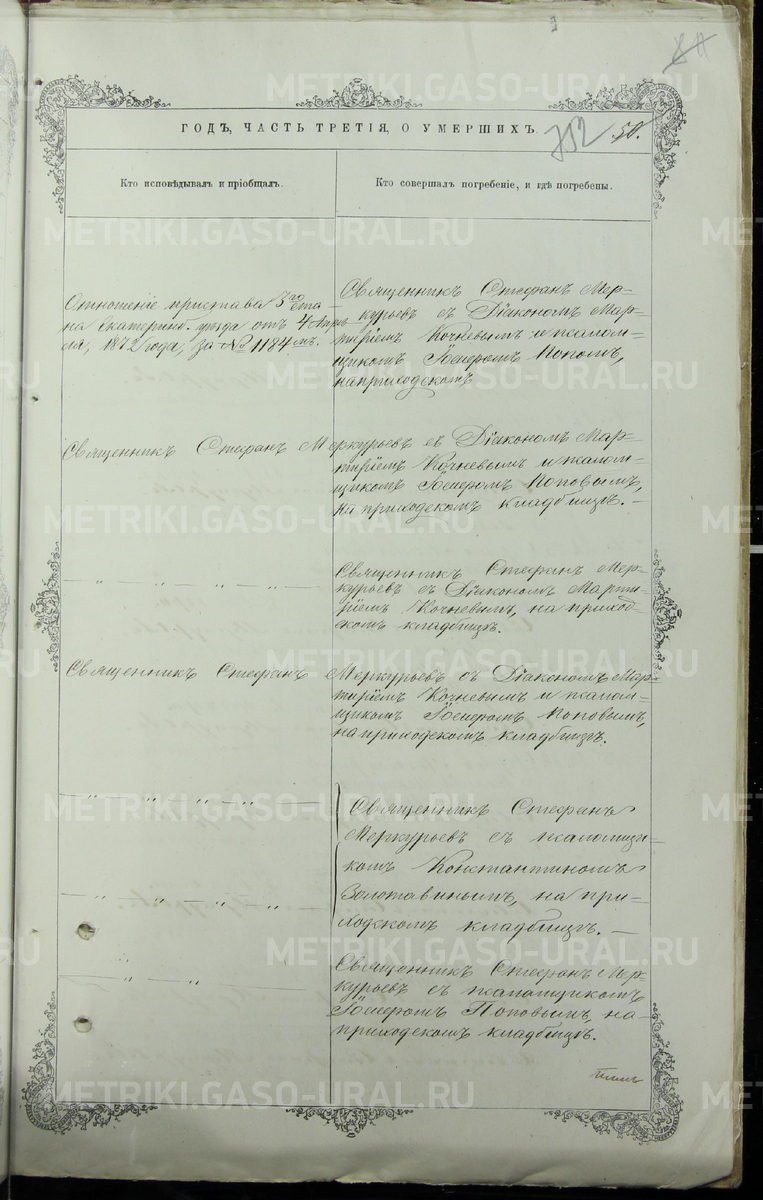 ГОДЪ, ЧАСТЬ ТРЕТІЯ, О УМЕРШИХЪ.
752
50.
Кто исповѣдывалъ и пріобщалъ.
Кто совершалъ погребеніе, и гдѣ погребены.
Отношеніе пристава 3го Ста-
на Екатерин. уѣзда отъ 4 Апрѣ-
ля, 1872 года, за № 1184мъ.
Священникъ Стефанъ Мер-
курьевъ съ Діакономъ Мар-
тиріемъ Кочневымъ и псалом-
щикомъ Іосифомъ Попом,
на приходскомъ
Священникъ Стефанъ Меркурьевъ съ Діакономъ Мар-
тиріемъ Кочневымъ и псалом-
щикомъ Іосифомъ Поповымъ,
на приходскомъ кладбищѣ. —
— " — " — " — " —
Священникъ Стефанъ Мер-
курьевъ съ Діакономъ Марти-
ріемъ Кочневымъ, на приход-
скомъ кладбищѣ.
Священникъ Стефанъ Меркурьевъ съ Діакономъ Мар-
тиріемъ Кочневымъ и псалом-
щикомъ Іосифомъ Поповымъ,
на приходскомъ кладбищѣ.
" — " — " — " —
— " — " — " — " —
Священникъ Стефанъ
Меркурьевъ съ псаломщи-
комъ Константиномъ
Золотавинымъ, на при-
ходскомъ кладбищѣ. —
— " — " —
Священникъ Стефанъ Мер-
курьевъ съ псаломщикомъ
Іосифомъ Поповымъ, на
приходскомъ кладбищѣ.
METRIKI.GASO-URAL.RU